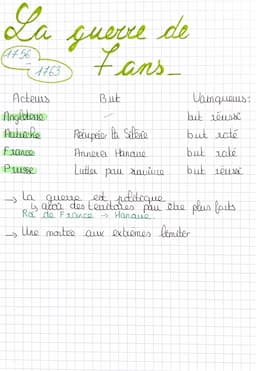 La guerre de
7 ans_
1756
1763
Acteurs But Vainqueurs:
Angleterre - but réussi
Autriche Récupérer la Silésie but raté
France Annexer Hanovre but raté
Prusse Lutter pour survivre but réussi
→ La guerre est politique
↳ avoir des territoires pour être plus forts
Roi de France → Hanovre.
→ Une montée aux extrêmes limiter